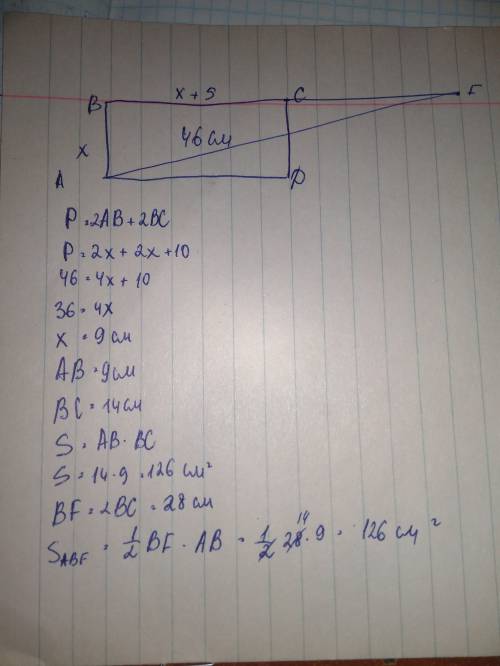 B x + 5 C F
x 46 см
A D
P = 2AB + 2BC
P = 2x + 2x + 10
46 = 4x + 10
36 = 4x
x = 9 см
AB = 9 см
BC = 14 см
S = AB · BC
S = 14 · 9 = 126 см²
BF = 2BC = 28 см
S_ABF = 1/2 BF · AB = 1/2 28 · 9 = 126 см²
14